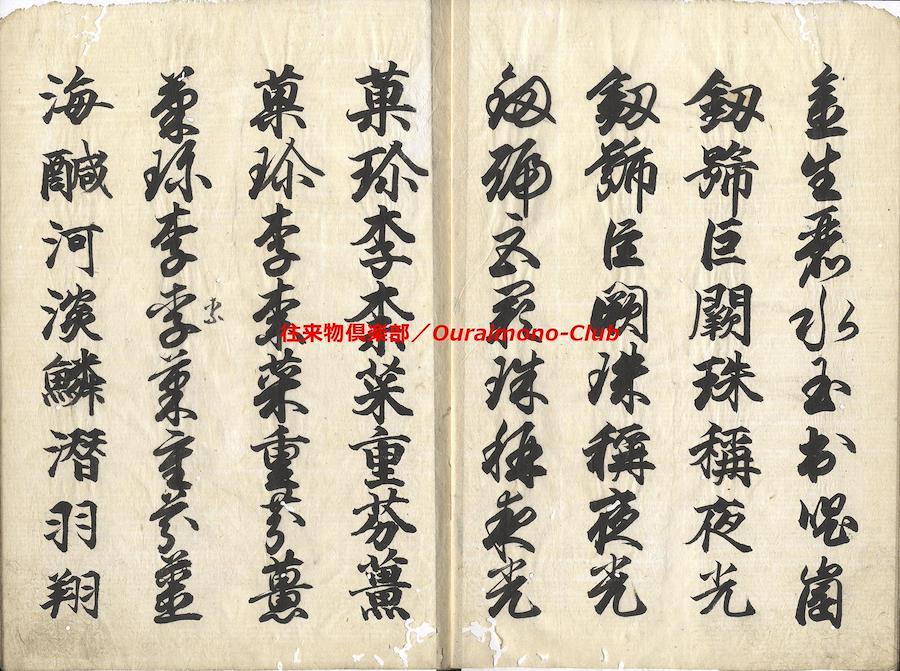 金生麗水玉出崑崗
釼號巨闕珠稱夜光
釼號巨闕珠稱夜光
釼號巨闕珠稱夜光
菓珎李柰菜重芥薑
菓珎李柰菜重芥薑
菓珎李柰菜重芥薑
海鹹河淡鱗潜羽翔
往来物倶楽部／Ouraimono-Club